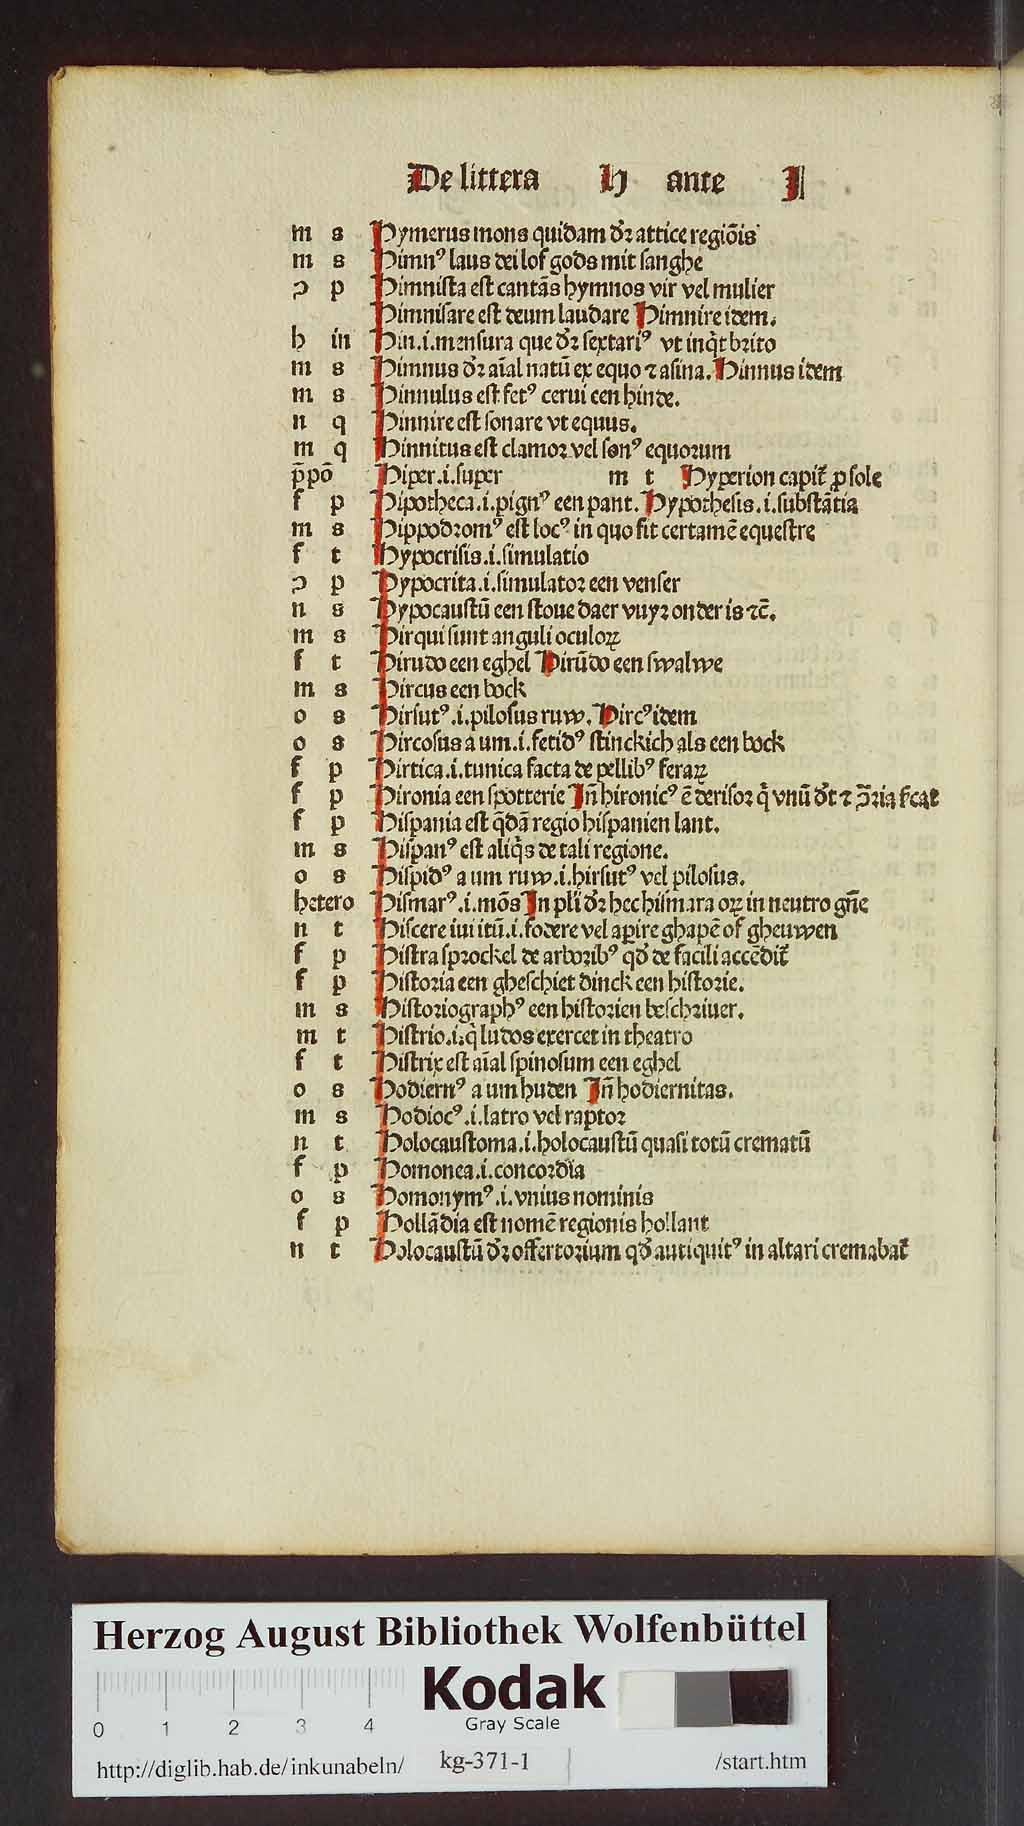 De littera H ante I
m s Hymerus mons quidam dꝛ attice regiōis
m s Himnꝰ laus dei lof gods mit ſanghe
ↄ p Himniſta est cantās hymnos vir vel mulier
Himniſare est deum laudare Himnire idem.
h in Hin.i.mensura que dꝛ ſextariꝰ vt inq̇t bꝛito
m s Himnus dꝛ aīal natū ex equo ⁊ aſina. Hinnus idem
m s Hinnulus est fetꝰ cerui een hinde.
n q Hinnire est ſonare vt equus.
m q Hinnitus est clamoꝛ vel ſonꝰ equoꝛum
p̄pō Hiper.i.ſuper m t Hyperion capit᷑ ꝓ ſole
f p Hipotheca.i.pignꝰ een pant. Hypothesis.i.ſubſtātia
m s Hippodꝛomꝰ est locꝰ in quo fit certamē equeſtre
f t Hypocriſis.i.ſimulatio
ↄ p Hypocrita.i.ſimulatoꝛ een venſer
n s Hypocauſtū een ſtoue daer vuyꝛ onder is ⁊c̄.
m s Hirqui ſunt anguli oculoꝝ
f t Hirudo een eghel Hirūdo een ſwalwe
m s Hircus een bock
o s Hirſutꝰ.i.piloſus ruw. Hircꝰ idem
o s Hircoſus a um.i.fetidꝰ ſtinckich als een bock
f p Hirtica.i.tunica facta de pellibꝰ feraꝝ
f p Hironia een ſpotterie Iñ hironicꝰ ē deriſoꝛ q̇ vnū dt ⁊
f p Hiſpania est q̄dā regio hiſpanien lant.
m s Hiſpanꝰ est aliq̇s de tali regione.
o s Hiſpidꝰ a um ruw.i.hirſutꝰ vel piloſus.
hetero Hiſmarꝰ.i.mōs In pli dꝛ hec hiſmara oꝝ in neutro gn̄e
n t Hiſcere iui itū.i.fodere vel apire ghapē of gheuwen
f p Hiſtra ſpꝛockel de arboꝛibꝰ qđ de facili accēdit᷑
f p Hiſtoꝛia een gheſchiet dinck een hiſtoꝛie.
m s Hiſtoꝛiographꝰ een hiſtoꝛien beſchꝛiuer.
m t Hiſtrio.i.q̇ ludos exercet in theatro
f t Hiſtrix est aīal ſpinoſum een eghel
o s Hodiernꝰ a um huden Iñ hodiernitas.
m s Hodiocꝰ.i.latro vel raptoꝛ
n t Holocauſtoma.i.holocauſtū quaſi totū crematū
f p Homonea.i.concoꝛdia
o s Homonymꝰ.i.vnius nominis
f p Hollādia est nomē regionis hollant
n t Holocauſtū dꝛ offertoꝛium qđ antiquitꝰ in altari cremabat᷑
Herzog August Bibliothek Wolfenbüttel
Kodak
Gray Scale
0 1 2 3 4
http://diglib.hab.de/inkunabeln/ kg-371-1 /start.htm